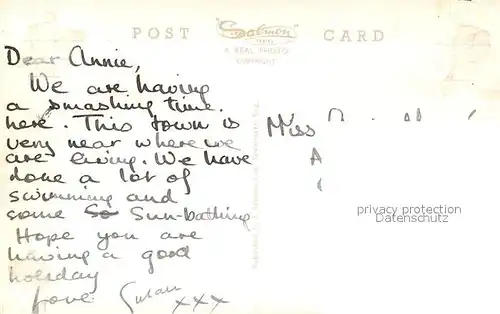 POST CARD
Salmon
A REAL PHOTO
COPYRIGHT
Dear Annie,
We are having
a smashing time.
here. This town is
very near where we
are living. We have
done a lot of
swimming and
some So Sun-bathing
Hope you are
having a good
holiday
love Susan
xxx
Miss
A
privacy protection